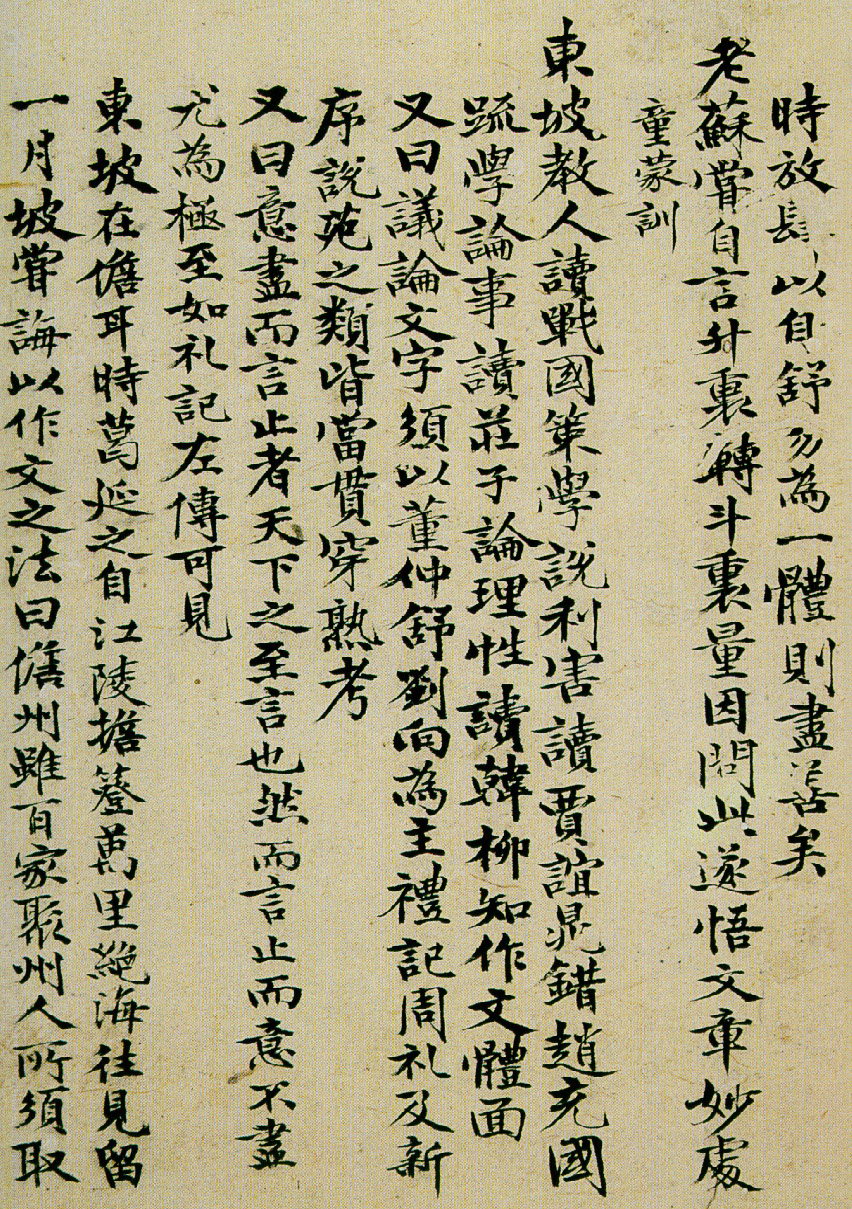 時放肆以自舒勿為一體則盡善矣
老蘇甞自言升裏轉斗裏量因聞此遂悟文章妙處
童蒙訓
東坡教人讀戰國策學說利害讀賈誼晁錯趙充國
疏學論事讀莊子論理性讀韓柳知作文體面
又曰議論文字須以董仲舒劉向為主禮記周礼及新
序說苑之類皆當貫穿熟考
又曰意盡而言止者天下之至言也然而言止而意不盡
尤為極至如礼記左傳可見
東坡在儋耳時葛延之自江陵擔簦萬里絶海往見留
一月坡甞誨以作文之法曰儋州雖百家聚州人所須取